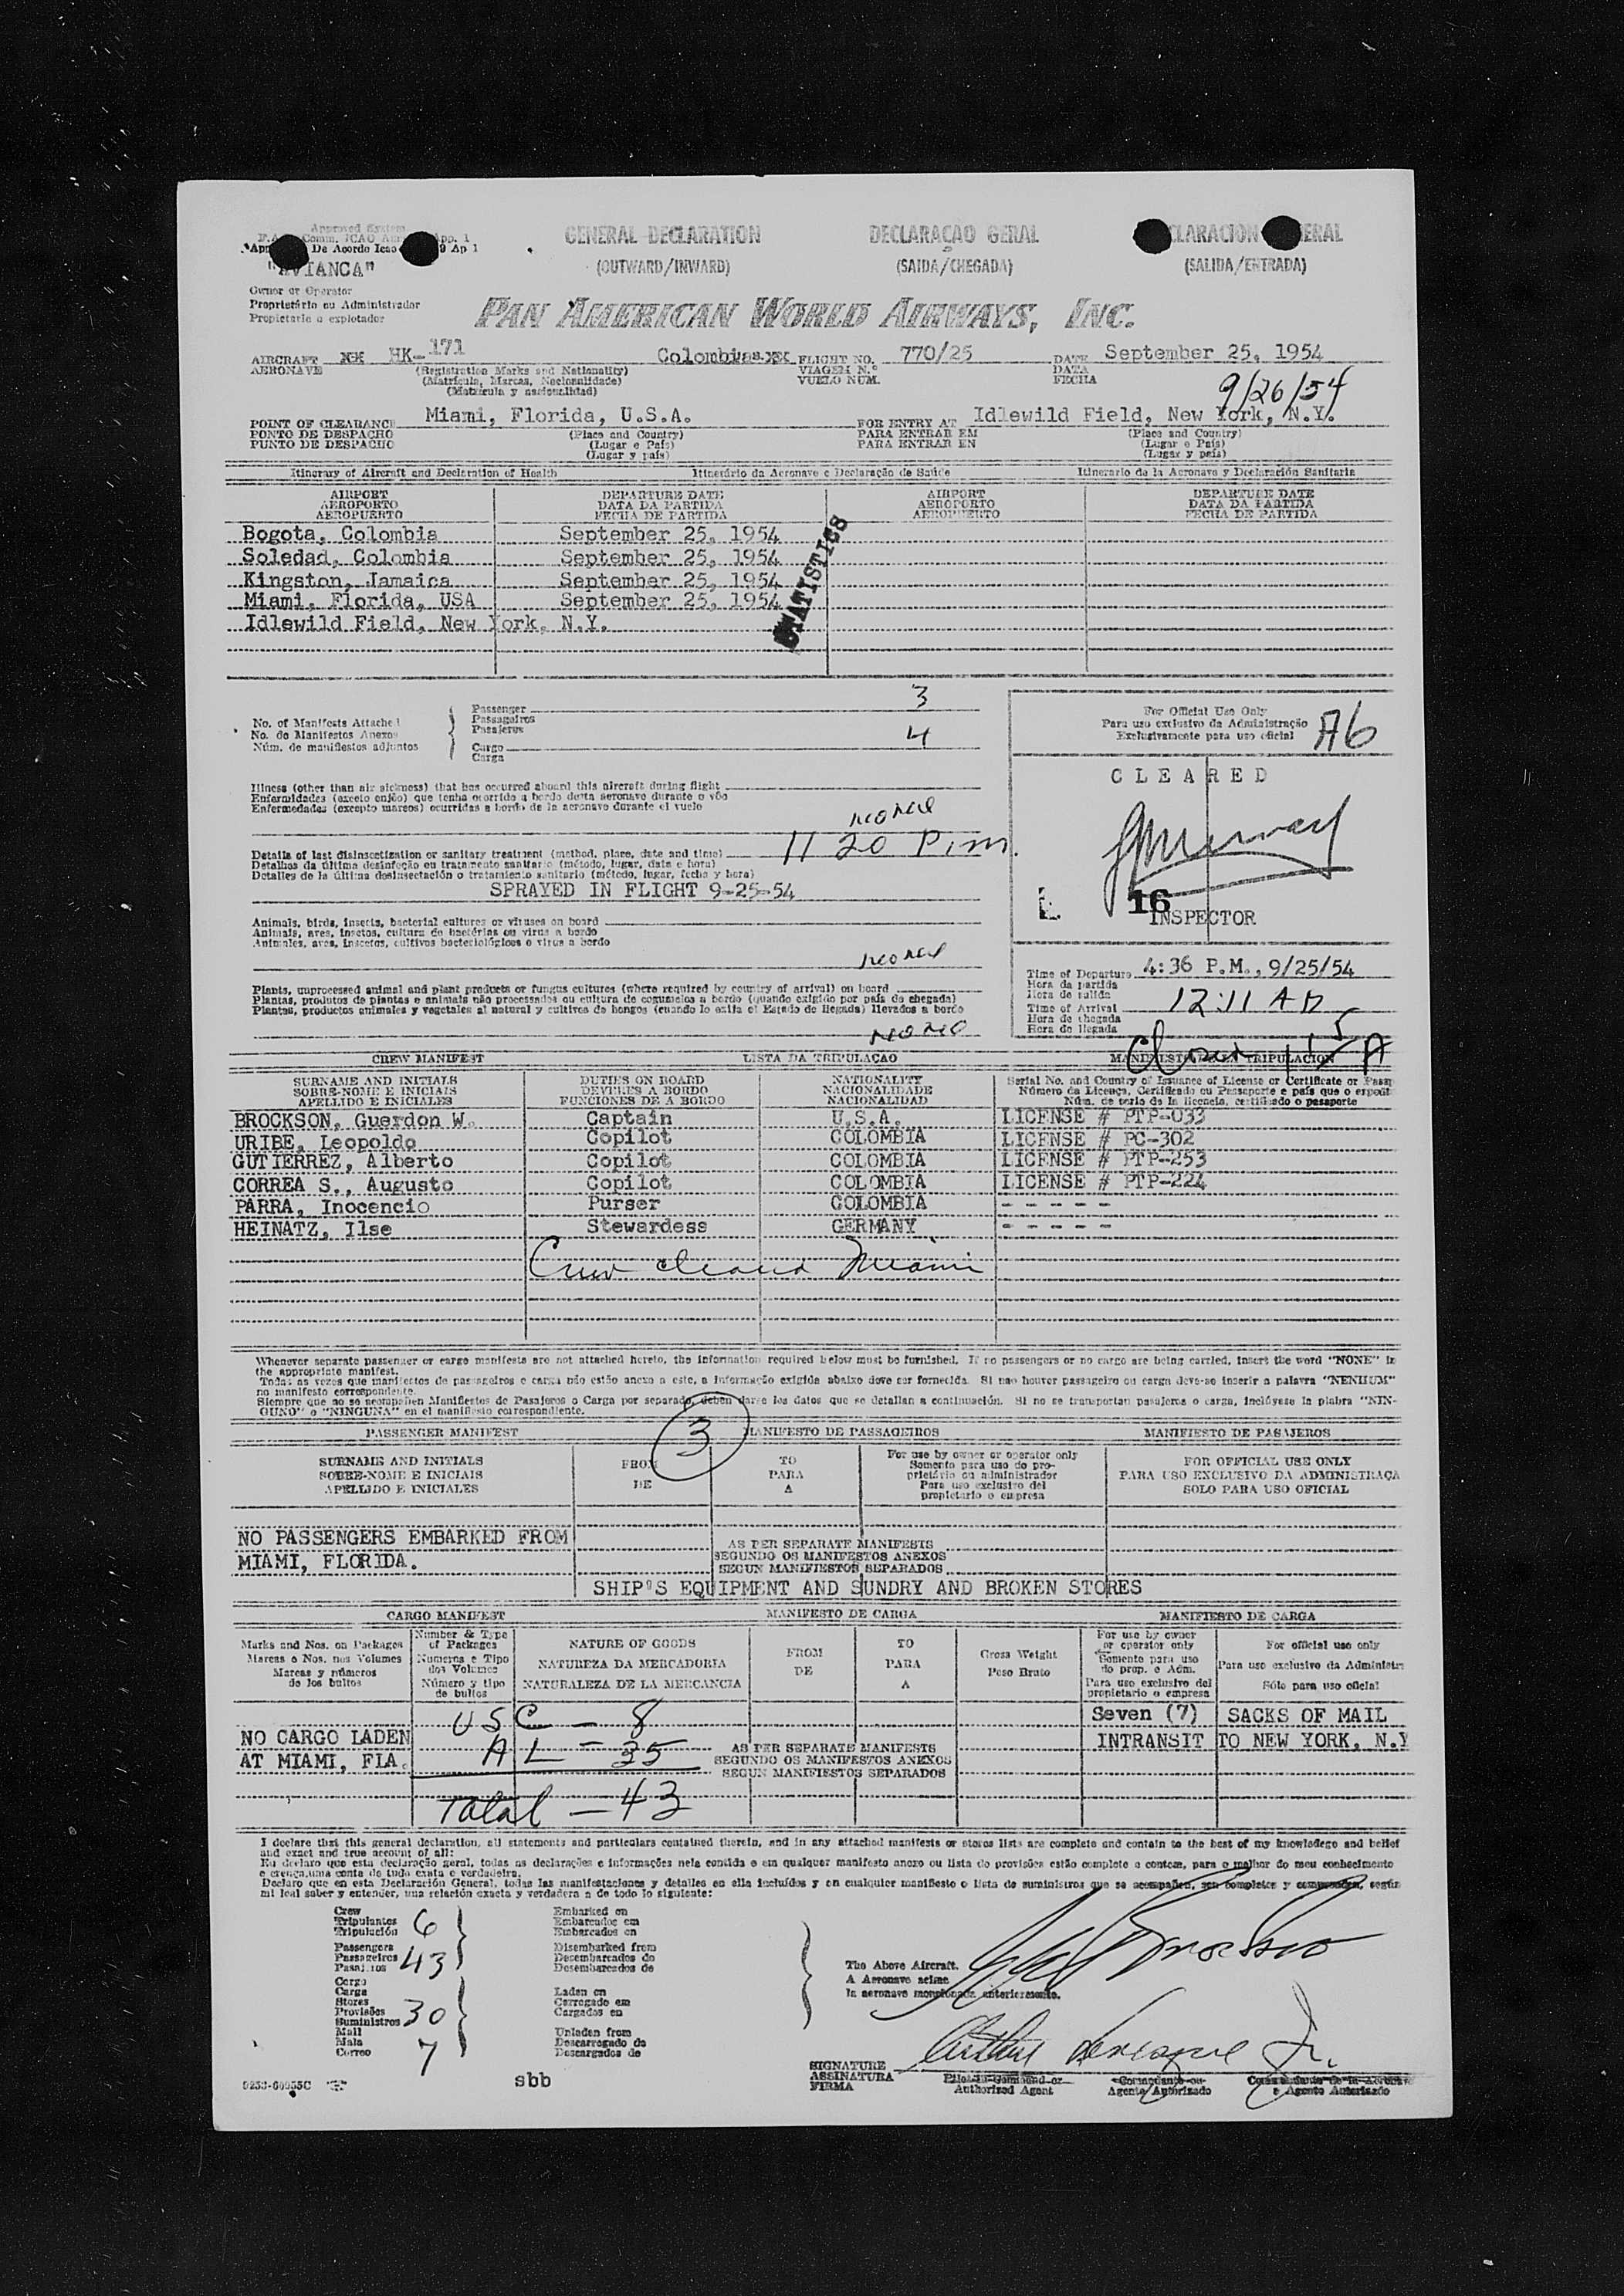 Approved System
Comm. ICAO App. 1
De Acordo Icao 9 Ap 1
GENERAL DECLARATION DECLARAÇAO GERAL
(OUTWARD/INWARD) (SAIDA/CHEGADA) (SALIDA/ENTRADA)
"AVIANCA"
Owner or Operator
Proprietário ou Administrador
Propietario o explotador
PAN AMERICAN WORLD AIRWAYS, INC.
AIRCRAFT HK-171 Colombia FLIGHT NO. 770/25 DATE September 25, 1954
AERONAVE (Registration Marks and Nationality) VIAGEM N.º DATA
(Matrícula, Marcas, Nacionalidade) VUELO NUM. FECHA
(Matrícula y nacionalidad) 9/26/54
POINT OF CLEARANCE Miami, Florida, U.S.A. FOR ENTRY AT Idlewild Field, New York, N.Y.
PONTO DE DESPACHO (Place and Country) PARA ENTRAR EM (Place and Country)
PUNTO DE DESPACHO (Lugar e País) PARA ENTRAR EN (Lugar e País)
(Lugar y país) (Lugar y país)
Itinerary of Aircraft and Declaration of Health Itinerário da Aeronave e Declaração de Saúde Itinerario de la Aeronave y Declaración Sanitaria
AIRPORT DEPARTURE DATE AIRPORT DEPARTURE DATE
AEROPORTO DATA DA PARTIDA AEROPORTO DATA DA PARTIDA
AEROPUERTO FECHA DE PARTIDA AEROPUERTO FECHA DE PARTIDA
Bogota, Colombia September 25, 1954
Soledad, Colombia September 25, 1954
Kingston, Jamaica September 25, 1954
Miami, Florida, USA September 25, 1954
Idlewild Field, New York, N.Y.
STATISTICS
No. of Manifests Attached Passenger 3
No. de Manifestos Anexos Passageiros
Núm. de manifiestos adjuntos Pasajeros
Cargo 4
Carga
For Official Use Only
Para uso exclusivo da Administração
Exclusivamente para uso oficial A6
Illness (other than air sickness) that has occurred aboard this aircraft during flight
Enfermidades (exceto enjôo) que tenha ocorrido a bordo desta aeronave durante o vôo
Enfermedades (excepto mareos) ocurridas a bordo de la aeronave durante el vuelo
11 20 P.m.
Details of last disinsectization or sanitary treatment (method, place, date and time)
Detalhes da última desinfeção ou tratamento sanitario (método, lugar, data e hora)
Detalles de la última desinsectación o tratamiento sanitario (método, lugar, fecha y hora)
SPRAYED IN FLIGHT 9-25-54
CLEARED
16
INSPECTOR
Animals, birds, insects, bacterial cultures or viruses on board
Animais, aves, insetos, cultura de bactérias ou virus a bordo
Animales, aves, insectos, cultivos bacteriológicos o virus a bordo
Plants, unprocessed animal and plant products or fungus cultures (where required by country of arrival) on board
Plantas, produtos de plantas e animais não processados ou cultura de cogumelos a bordo (quando exigido por país de chegada)
Plantas, productos animales y vegetales al natural y cultivos de hongos (cuando lo exija el Estado de llegada) llevados a bordo
Time of Departure 4:36 P.M., 9/25/54
Hora da partida
Hora de salida
Time of Arrival 12:11 A
Hora de chegada
Hora de llegada
CREW MANIFEST LISTA DA TRIPULAÇAO TRIPULACION
SURNAME AND INITIALS DUTIES ON BOARD NATIONALITY Serial No. and Country of Issuance of License or Certificate or Pass
SOBRE-NOME E INICIAIS DEVERES A BORDO NACIONALIDADE Número da Licença, Certificado ou Passaporte e país que o expedi
APELLIDO E INICIALES FUNCIONES DE A BORDO NACIONALIDAD Núm. de serie de la licencia, certificado o pasaporte
BROCKSON, Guerdon W. Captain U.S.A. LICENSE # PTP-033
URIBE, Leopoldo Copilot COLOMBIA LICENSE # PC-302
GUTIERREZ, Alberto Copilot COLOMBIA LICENSE # PTP-253
CORREA S., Augusto Copilot COLOMBIA LICENSE # PTP-224
PARRA, Inocencio Purser COLOMBIA - - - - -
HEINATZ, Ilse Stewardess GERMANY - - - - -
Crew cleared Miami
Whenever separate passenger or cargo manifests are not attached hereto, the information required below must be furnished. If no passengers or no cargo are being carried, insert the word "NONE" in
the appropriate manifest.
Todas as vezes que manifestos de passageiros e carga não estão anexo a este, a informação exigida abaixo deve ser fornecida. Si nao houver passageiro ou carga deve-se inserir a palavra "NENHUM"
no manifesto correspondente.
Siempre que no se acompañen Manifiestos de Pasajeros o Carga por separado, deben darse los datos que se detallan a continuación. Si no se transportan pasajeros o carga, inclúyase la plabra "NIN-
GUNO" o "NINGUNA" en el manifiesto correspondiente.
3
PASSENGER MANIFEST MANIFESTO DE PASSAGEIROS MANIFIESTO DE PASAJEROS
SURNAME AND INITIALS FROM TO For use by owner or operator only FOR OFFICIAL USE ONLY
SOBRE-NOME E INICIAIS DE PARA Somente para uso do pro- PARA USO EXCLUSIVO DA ADMINISTRAÇA
APELLIDO E INICIALES A prietário ou administrador SOLO PARA USO OFICIAL
Para uso exclusivo del
propietario o empresa
NO PASSENGERS EMBARKED FROM AS PER SEPARATE MANIFESTS
MIAMI, FLORIDA. SEGUNDO OS MANIFESTOS ANEXOS
SEGUN MANIFIESTOS SEPARADOS
SHIP'S EQUIPMENT AND SUNDRY AND BROKEN STORES
CARGO MANIFEST MANIFESTO DE CARGA MANIFIESTO DE CARGA
Marks and Nos. on Packages Number & Type of Packages NATURE OF GOODS FROM TO Gross Weight For use by owner or operator only For official use only
Marcas e Nos. nos Volumes Numeros e Tipo dos Volumes NATUREZA DA MERCADORIA DE PARA Peso Bruto Somente para uso do prop. e Adm. Para uso exclusivo da Administr
Marcas y números de los bultos Número y tipo de bultos NATURALEZA DE LA MERCANCIA A Para uso exclusivo del propietario o empresa Sólo para uso oficial
USC - 8 Seven (7) SACKS OF MAIL
NO CARGO LADEN AL - 35 AS PER SEPARATE MANIFESTS INTRANSIT TO NEW YORK, N.Y
AT MIAMI, FLA. SEGUNDO OS MANIFESTOS ANEXOS
SEGUN MANIFIESTOS SEPARADOS
Total - 43
I declare that this general declaration, all statements and particulars contained therein, and in any attached manifests or stores lists are complete and contain to the best of my knowledege and belief
and exact and true account of all:
Eu declaro que esta declaração geral, todas as declarações e informações nela contida e em qualquer manifesto anexo ou lista de provisões estão complete e contem, para o melhor do meu conhecimento
e crença, uma conta de tudo exata e verdadeira.
Declaro que en esta Declaración General, todas las manifestaciones y detalles en ella incluídos y en cualquier manifiesto o lista de suministros que se acompañen, son completos y comprenden, según
mi leal saber y entender, una relación exacta y verdadera a de todo lo siguiente:
Crew Embarked on
Tripulantes 6 Embarcados em
Tripulación Embarcados en
Passengers Disembarked from
Passageiros 43 Desembarcados do
Pasajeros Desembarcados de
Cargo
Carga Laden on
Stores Carregado em
Provisões 30 Cargados en
Suministros
Mail Unladen from
Mala 7 Descarregado do
Correo Descargados de
The Above Aircraft.
A Aeronave acima
la aeronave mencionada anteriormente.
SIGNATURE Arthur Levesque Jr.
ASSINATURA Pilot in Command or Comandante ou
FIRMA Authorized Agent Agente Autorizado o Agente Autorizado
0253-60055C sbb